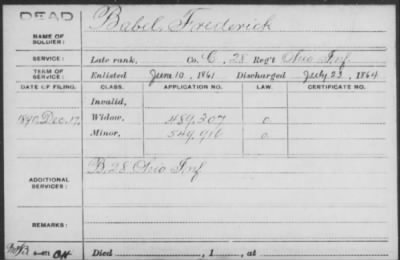 DEAD
NAME OF SOLDIER: Babel, Frederick
SERVICE: Late rank, Co. C, 28 Reg't Ohio Inf.
TERM OF SERVICE: Enlisted June 10, 1861 Discharged July 23, 1864
DATE OF FILING. CLASS. APPLICATION NO. LAW. CERTIFICATE NO.
Invalid,
1890 Dec. 17, Widow, 489,307 o
Minor, 549,916 o
ADDITIONAL SERVICES: B. 28 Ohio Inf.
REMARKS:
Died , 1 , at